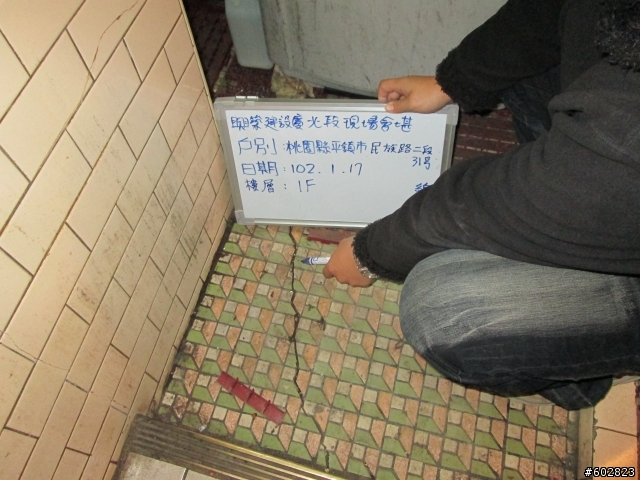 聯榮建設震光段現場會堪
戶別:桃園縣平鎮市民族路二段
31号
日期:102.1.17
樓層:1F
#602823